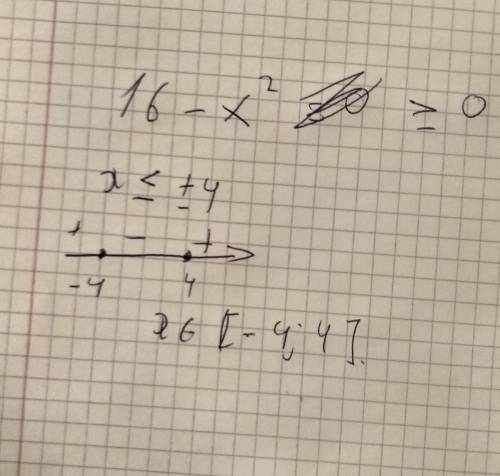 16 - x² ≥ 0
x ≤ ±4
+ - +
-4 4
x ∈ [-4; 4].